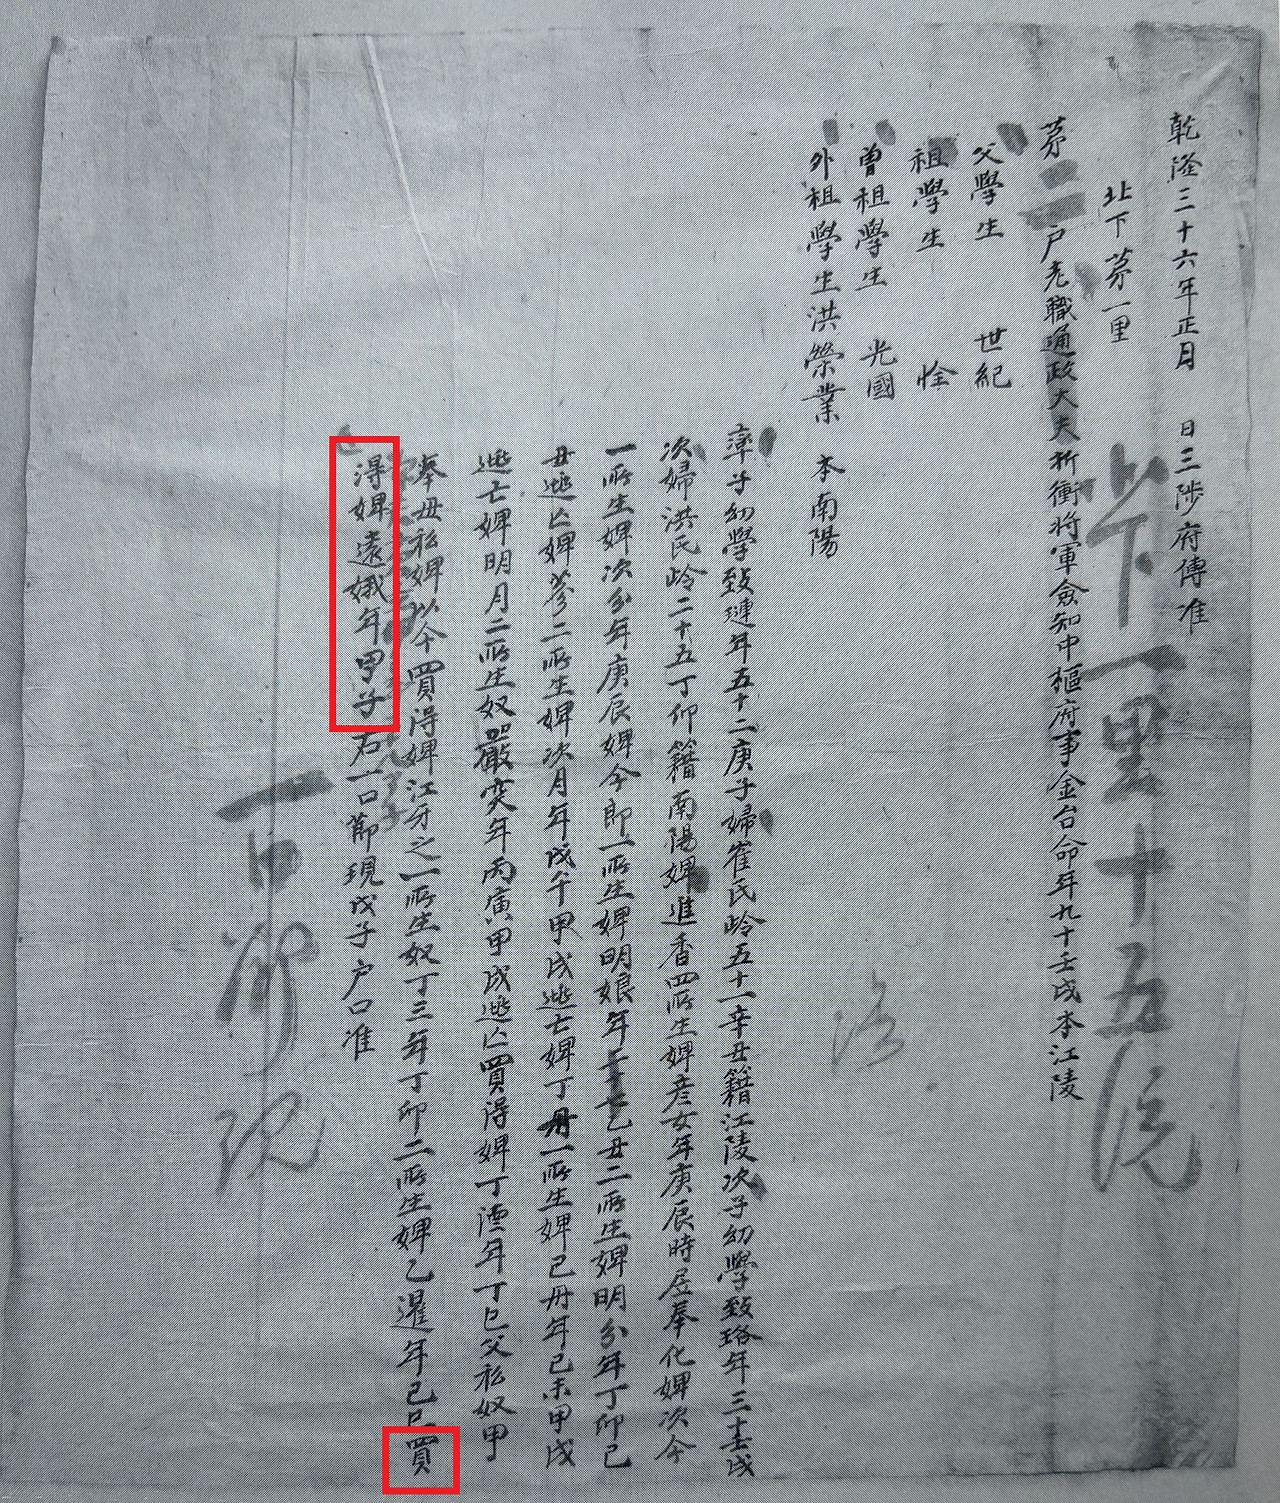 乾隆三十六年正月　日三陟府傳准
北下苐一里
苐二戶老職通政大夫折衝將軍僉知中樞府事金台命年九十壬戌本江陵
父學生　世紀
祖學生　恮
曾祖學生　光國
外祖學生洪榮業　本南陽
率子幼學致璉年五十二庚子婦崔氏岭五十一辛丑籍江陵次子幼學致珞年三十壬戌
次婦洪氏岭二十五丁卯籍南陽婢進香四所生婢彦女年庚辰時居奉化婢次今
一所生婢次分年庚辰婢今郎一所生婢明娘年乙丑二所生婢明分年丁卯已
丑逃亡婢莠二所生婢次月年戊午甲戌逃亡婢丁丹一所生婢已丹年已未甲戌
逃亡婢明月二所生奴嚴突年丙寅甲戌逃亡買得婢丁德年丁巳父私奴甲
奉母私婢以今買得婢江牙之一所生奴丁三年丁卯二所生婢乙濯年己巳買
得婢遠娥年甲子右一口節現戊子戶口准
北下一里十五統
一口節現